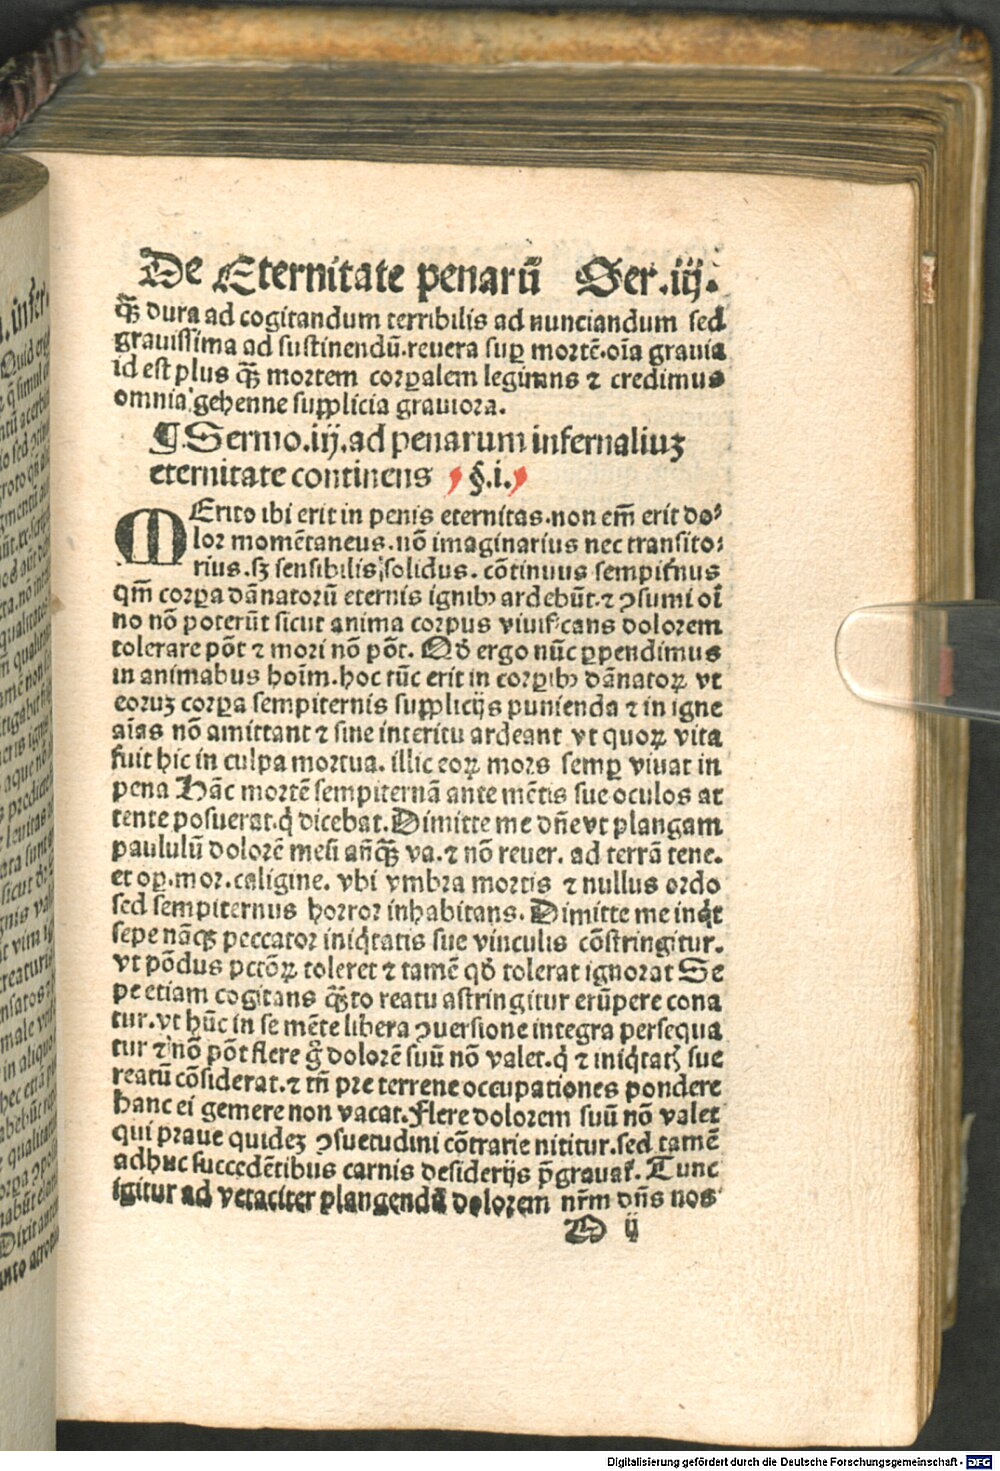 De Eternitate penarū Ser.iij.
ꝙ̄ dura ad cogitandum terribilis ad nunciandum sed
grauissima ad sustinendū.reuera suꝑ mortē.oīa grauia
id est plus ꝙ̄ mortem corꝑalem legimus ⁊ credimus
omnia gehenne supplicia grauiora.
¶ Sermo.iij.ad penarum infernaliuꝫ
eternitate continens §.i.
MErito ibi erit in penis eternitas.non em̄ erit do⸗
lor momētaneus.nō imaginarius nec transito⸗
rius.sꝫ sensibilis,solidus.cōtinuus sempitnus
qm̄ corꝑa dānatorū eternis ignibꝰ ardebūt.⁊ ꝯsumi oī
no nō poterūt sicut anima corpus viuificans dolorem
tolerare pōt ⁊ mori nō pōt. Qd̄ ergo nūc ꝑpendimus
in animabus hoīm.hoc tūc erit in corꝑibꝰ dānatoꝝ vt
eoruꝫ corꝑa sempiternis supplicijs punienda ⁊ in igne
aīas nō amittant ⁊ sine interitu ardeant vt quoꝝ vita
fuit hic in culpa mortua. illic eoꝝ mors semꝑ viuat in
pena Hāc mortē sempiternā ante mētis sue oculos at
tente posuerat.q̇ dicebat.Dimitte me dn̄e vt plangam
paululū dolorē meū an̄ꝙ̄ va.⁊ nō reuer. ad terrā tene.
et oꝑ.mor.caligine. vbi vmbra mortis ⁊ nullus ordo
sed sempiternus horror inhabitans. Dimitte me inq̇t
sepe nāqꝫ peccator iniq̇tatis sue vinculis cōstringitur.
vt pōdus pctōꝝ toleret ⁊ tamē qd̄ tolerat ignorat Se
pe etiam cogitans ꝙ̄to reatu astringitur erūpere cona
tur.vt hūc in se mēte libera ꝯuersione integra persequa
tur ⁊ nō pōt flere gͦ dolorē suū nō valet.q̇ ⁊ iniq̇tatꝭ sue
reatū cōsiderat.⁊ tn̄ pre terrene occupationes pondere
hanc ei gemere non vacat.Flere dolorem suū nō valet
qui praue quideꝫ ꝯsuetudini cōtrarie nititur.sed tamē
adhuc succedētibus carnis desiderijs p̄grauat̄. Tunc
igitur ad veraciter plangendū dolorem nr̄m dn̄s nos
D ij
Digitalisierung gefördert durch die Deutsche Forschungsgemeinschaft - DFG